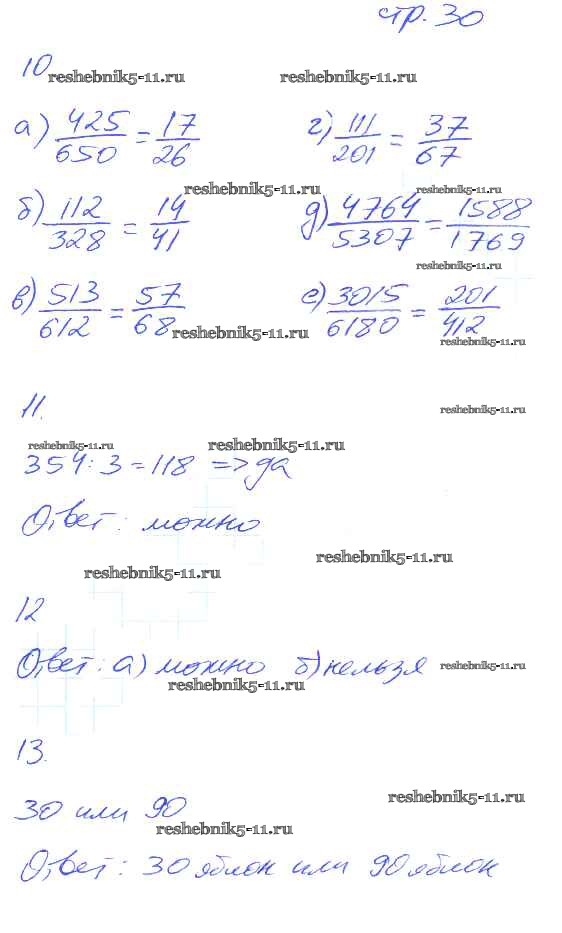 стр. 30
10
reshebnik5-11.ru reshebnik5-11.ru
а) 425/650 = 17/26 г) 111/201 = 37/67
reshebnik5-11.ru reshebnik5-11.ru
б) 112/328 = 14/41 д) 4764/5307 = 1588/1769
reshebnik5-11.ru
в) 513/612 = 57/68 е) 3015/6180 = 201/412
reshebnik5-11.ru reshebnik5-11.ru
11.
reshebnik5-11.ru
reshebnik5-11.ru reshebnik5-11.ru
354 : 3 = 118 => да
Ответ: можно
reshebnik5-11.ru
reshebnik5-11.ru
12
Ответ: а) можно б) нельзя reshebnik5-11.ru
reshebnik5-11.ru
13.
reshebnik5-11.ru
30 или 90
reshebnik5-11.ru
Ответ: 30 яблок или 90 яблок